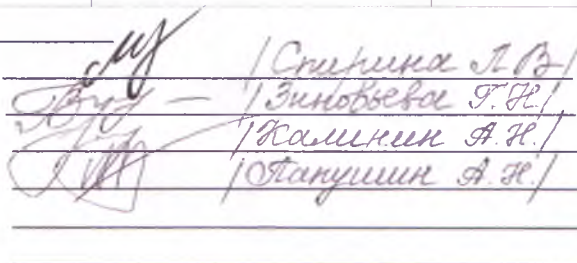 /Спирина Л.В/
/Зиновьева Г.Н./
/Калинин А.Н./
/Папушин А.Н./